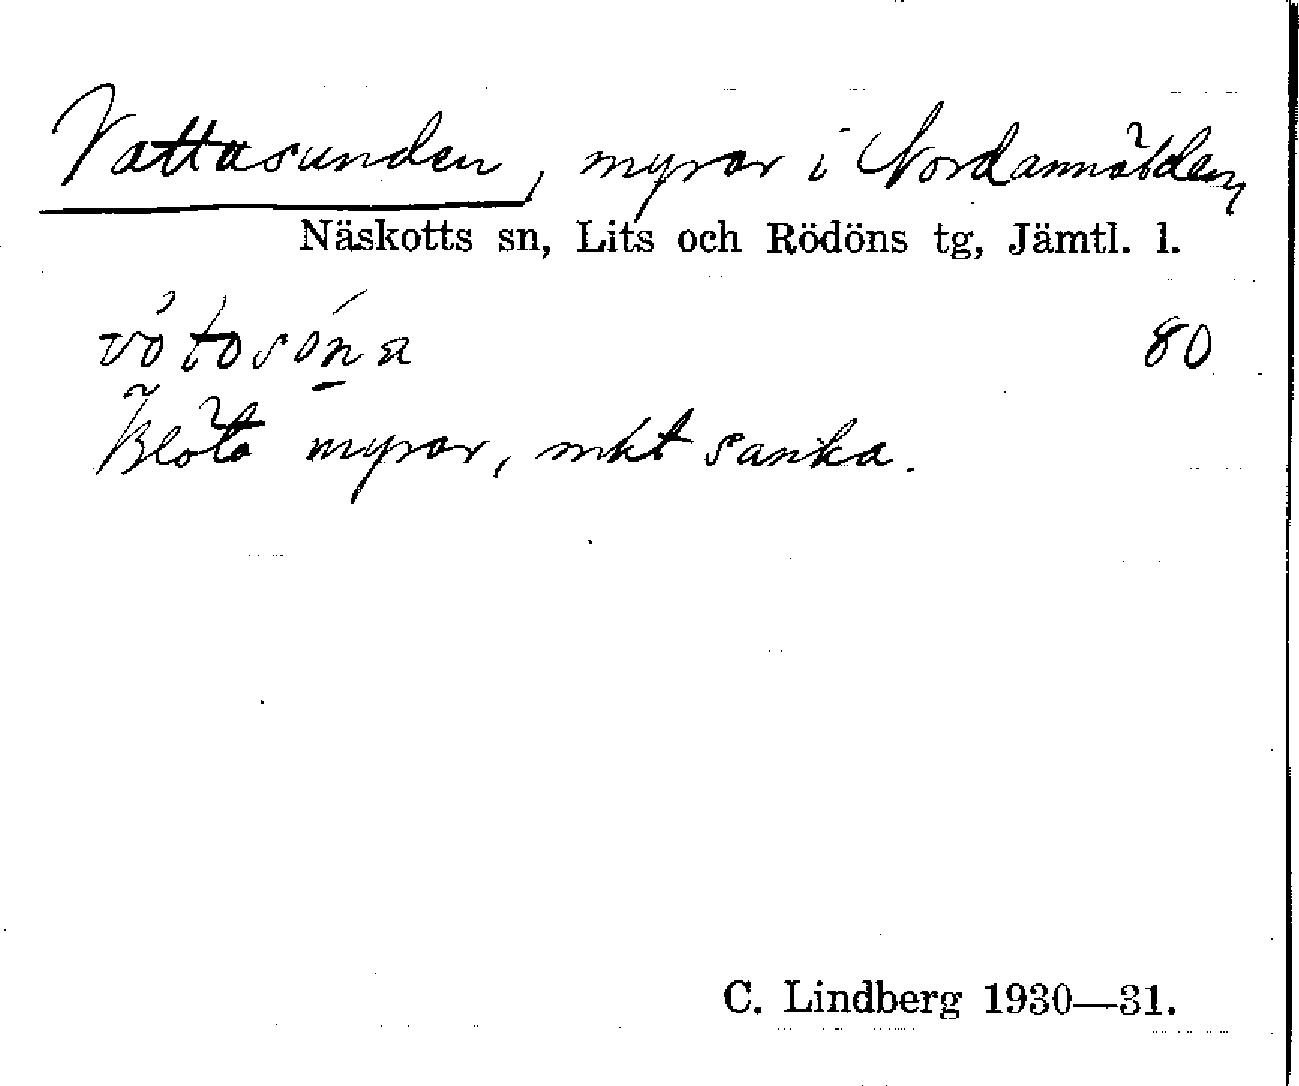 Vattasunden, myrar i Nordannälden,
Näskotts sn, Lits och Rödöns tg, Jämtl. l.
80
Blöta myrar, mkt sanka.
C. Lindberg 1930—31.